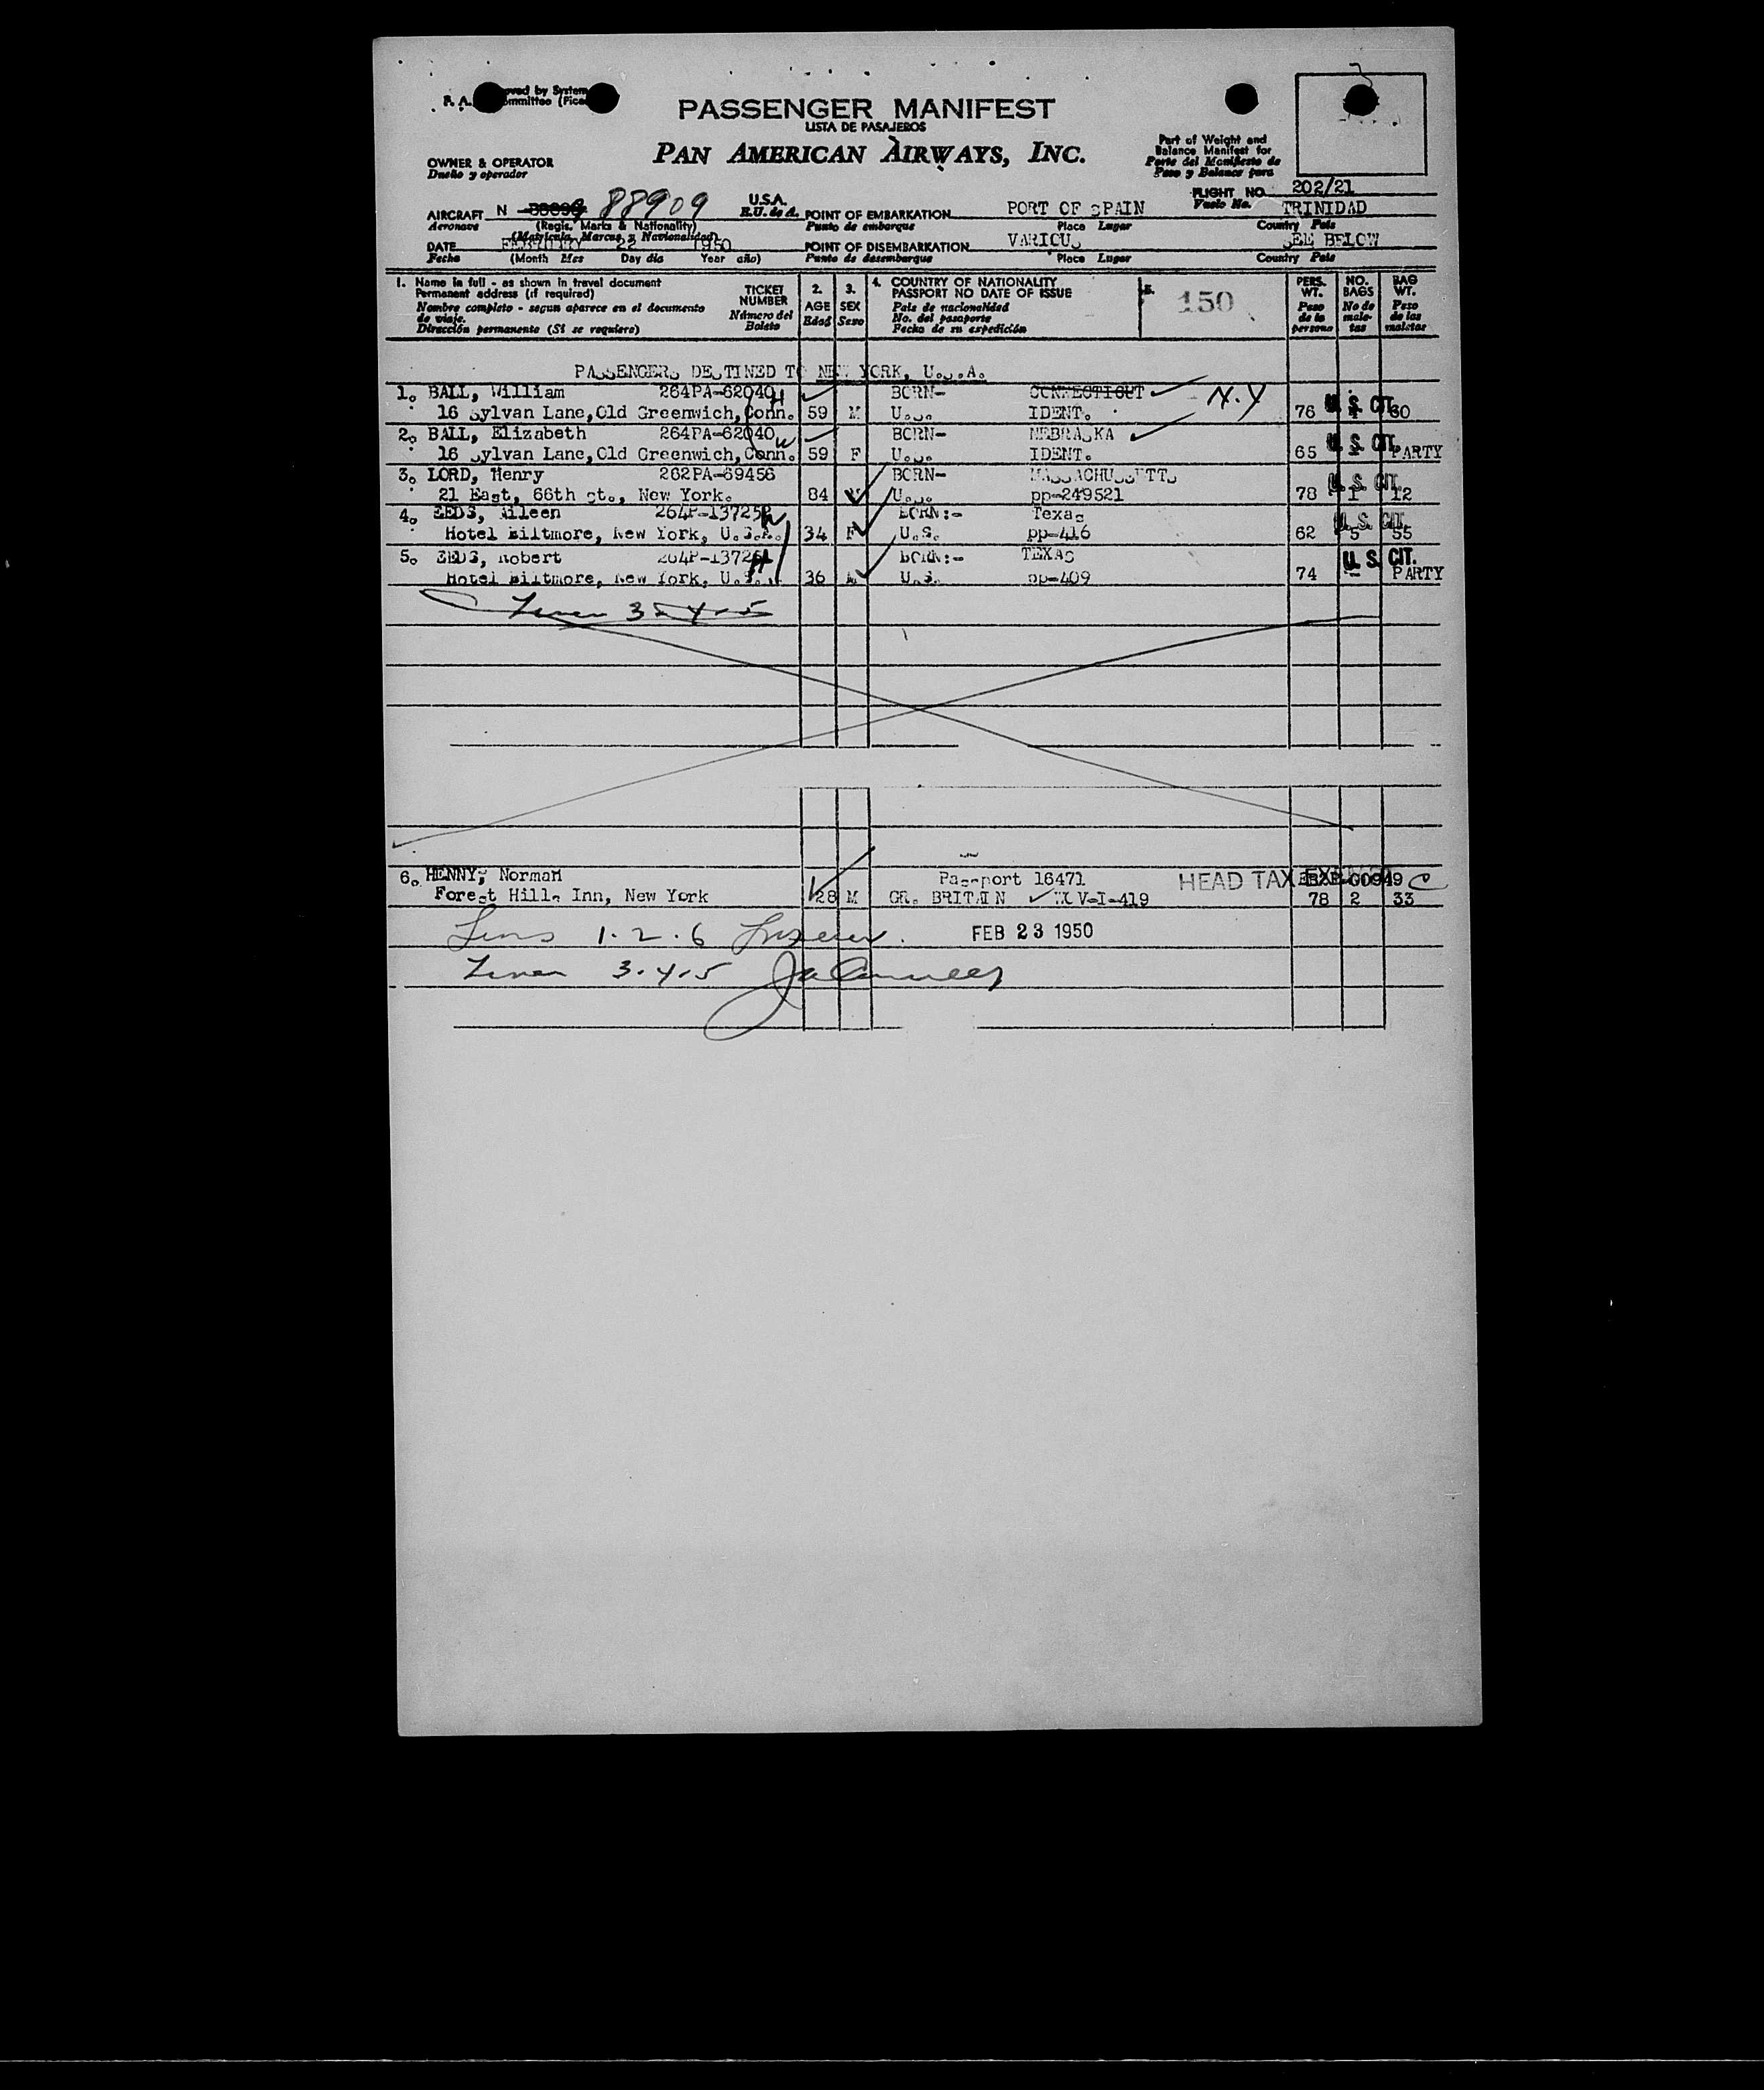 PASSENGER MANIFEST
LISTA DE PASAJEROS
PAN AMERICAN AIRWAYS, INC.
OWNER & OPERATOR
Dueño y operador
Part of Weight and
Balance Manifest for
Parte del Manifiesto de
Peso y Balance para
FLIGHT NO. 202/21
Vuelo No.
AIRCRAFT N 88909 U.S.A. POINT OF EMBARKATION PORT OF SPAIN TRINIDAD
Aeronave (Regis. Marks & Nationality) E.U. de A. Punto de embarque Place Lugar Country País
(Matricula, Marcas y Nacionalidad)
DATE FEBRUARY 22 1950 POINT OF DISEMBARKATION VARIOUS SEE BELOW
Fecha (Month Mes Day dia Year año) Punto de desembarque Place Lugar Country País
1. Name in full - as shown in travel document
Permanent address (if required)
Nombre completo - segun aparece en el documento
de viaje.
Dirección permanente (Si se requiere)
TICKET
NUMBER
Número del
Boleto
2.
AGE
Edad
3.
SEX
Sexo
4. COUNTRY OF NATIONALITY
PASSPORT NO DATE OF ISSUE
Pais de nacionalidad
No. del pasaporte
Fecha de su expedición
5.
150
PERS.
WT.
Peso
de la
persona
NO.
BAGS
No de
male-
tas
BAG
WT.
Peso
de las
maletas
PASSENGERS DESTINED TO NEW YORK, U.S.A.
1. BALL, William 264PA-62040 H BORN- CONNECTICUT N.Y
16 Sylvan Lane,Old Greenwich,Conn. 59 M U.S. IDENT. 76 U. S. CIT. 60
2. BALL, Elizabeth 264PA-62040 W BORN- NEBRASKA
16 Sylvan Lane,Old Greenwich,Conn. 59 F U.S. IDENT. 65 U. S. CIT. PARTY
3. LORD, Henry 262PA-69456 BORN- MASSACHUSSETTS
21 East, 66th st., New York. 84 M U.S. pp-249521 78 1 U. S. CIT. 12
4. EEDS, Aileen 264P-13725 W BORN:- Texas
Hotel Biltmore, New York, U.S.A. 34 F U.S. pp-416 62 5 U. S. CIT. 55
5. EEDS, Robert 264P-13726 H BORN:- TEXAS
Hotel Biltmore, New York, U.S.A. 36 M U.S. pp-409 74 - U. S. CIT. PARTY
3 4-5
6. HENNY, Norman Passport 16471 HEAD TAX
Forest Hills Inn, New York 28 M GR. BRITAIN V-I-419 78 2 33
1. 2. 6 FEB 23 1950
3. 4. 5